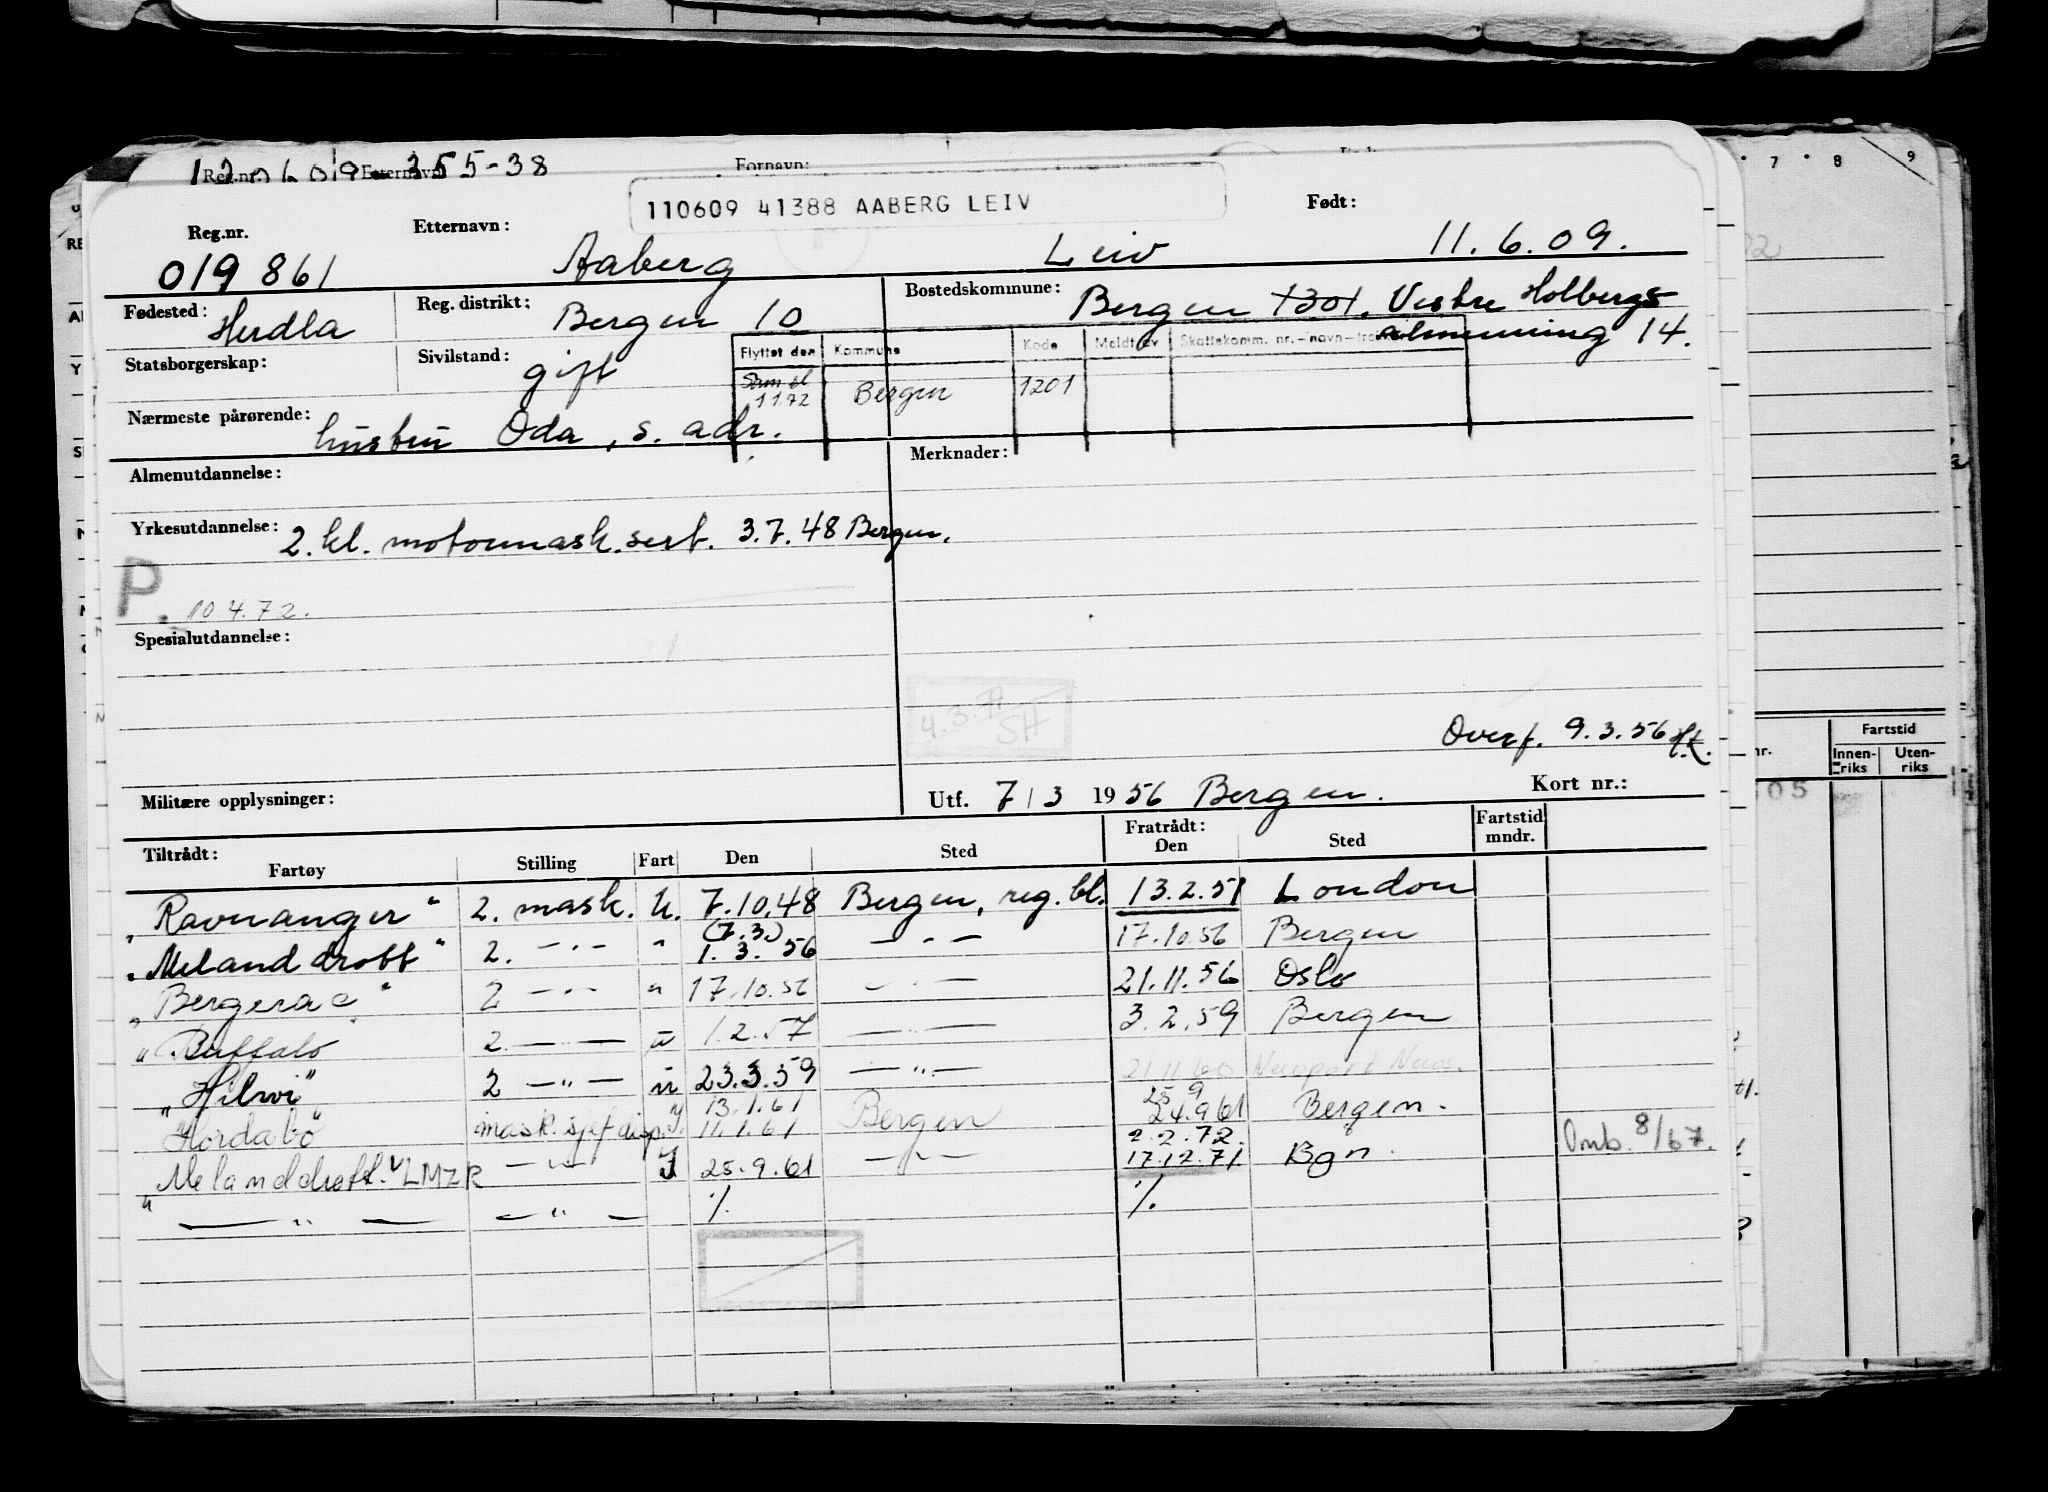 12 06 09 355-38
Reg.nr. Etternavn: Fornavn:
110609 41388 AABERG LEIV
Reg.nr. Etternavn: Født:
019 861 Aaberg Leiv 11.6.09.
Fødested: Herdla Reg. distrikt: Bergen 10 Bostedskommune: Bergen 1301. Vestre Holbergs
almenning 14.
Statsborgerskap: Sivilstand: gift
Flyttet den Kommune Kode Meldt av Skattekomm. nr.-navn-
1 1 72 Bergen 1201
Nærmeste pårørende: hustru Oda, s. adr.
Almenutdannelse: Merknader:
Yrkesutdannelse: 2. kl. motormask.sert. 3.7.48 Bergen.
P. 10.4.72.
Spesialutdannelse:
4.3.71
SH
Overf. 9.3.56
Militære opplysninger: Utf. 7/3 1956 Bergen. Kort nr.:
Tiltrådt: Fratrådt: Fartstid
Fartøy Stilling Fart Den Sted Den Sted mndr.
"Ravnanger" 2. mask. U. 7.10.48 Bergen, reg. bl. 13.2.51 London
(7.3.)
"Melanddrott" 2. —"— " 1.3.56 —"— 17.10.56 Bergen
"Bergerac" 2 —"— " 17.10.56 —"— 21.11.56 Oslo
"Buffalo" 2. —"— u 1.2.57 —"— 3.2.59 Bergen
"Hilwi" 2 —"— u 23.3.59 —"— 21.11.60 Newport News.
13.1.61 25 9
"Hordabø" mask.sjef disp. I. 11.1.61 Bergen 24.9.61 Bergen.
2.2.72.
"Melanddrott." LMZR —"— I 25.9.61 —"— 17.12.71. Bgn. Omb. 8/67.
—"— —"— ⁒ ⁒
Fartstid
Innen-riks Uten-riks